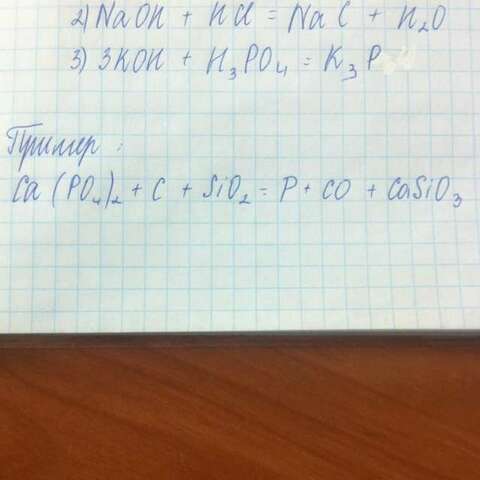 2) NaOH + HCl = NaC + H₂O
3) 3KOH + H₃PO₄ = K₃P
Пример:
Ca(PO₄)₂ + C + SiO₂ = P + CO + CaSiO₃